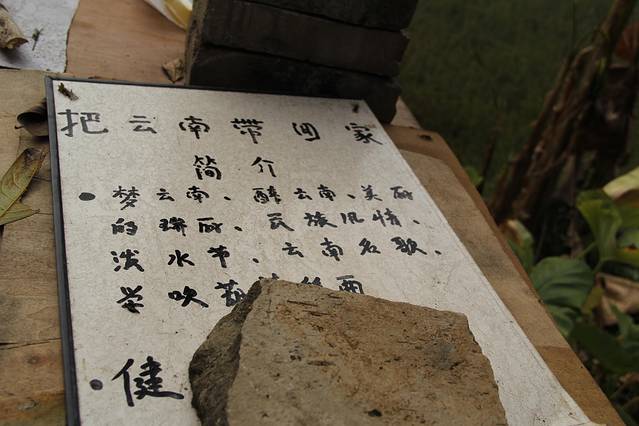 把云南帶回家
简介
• 梦云南、醉云南、美丽
的瑞丽、民族风情、
泼水节、云南名歌、
学吹葫
• 健